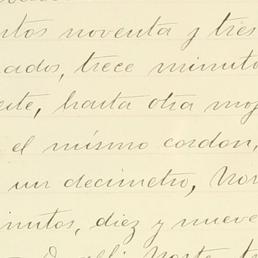 ntos noventa y tres
ados, trece minuto
este, hasta otra moj
el mismo cordon,
un decimetro, Nor
inutos, diez y nueve